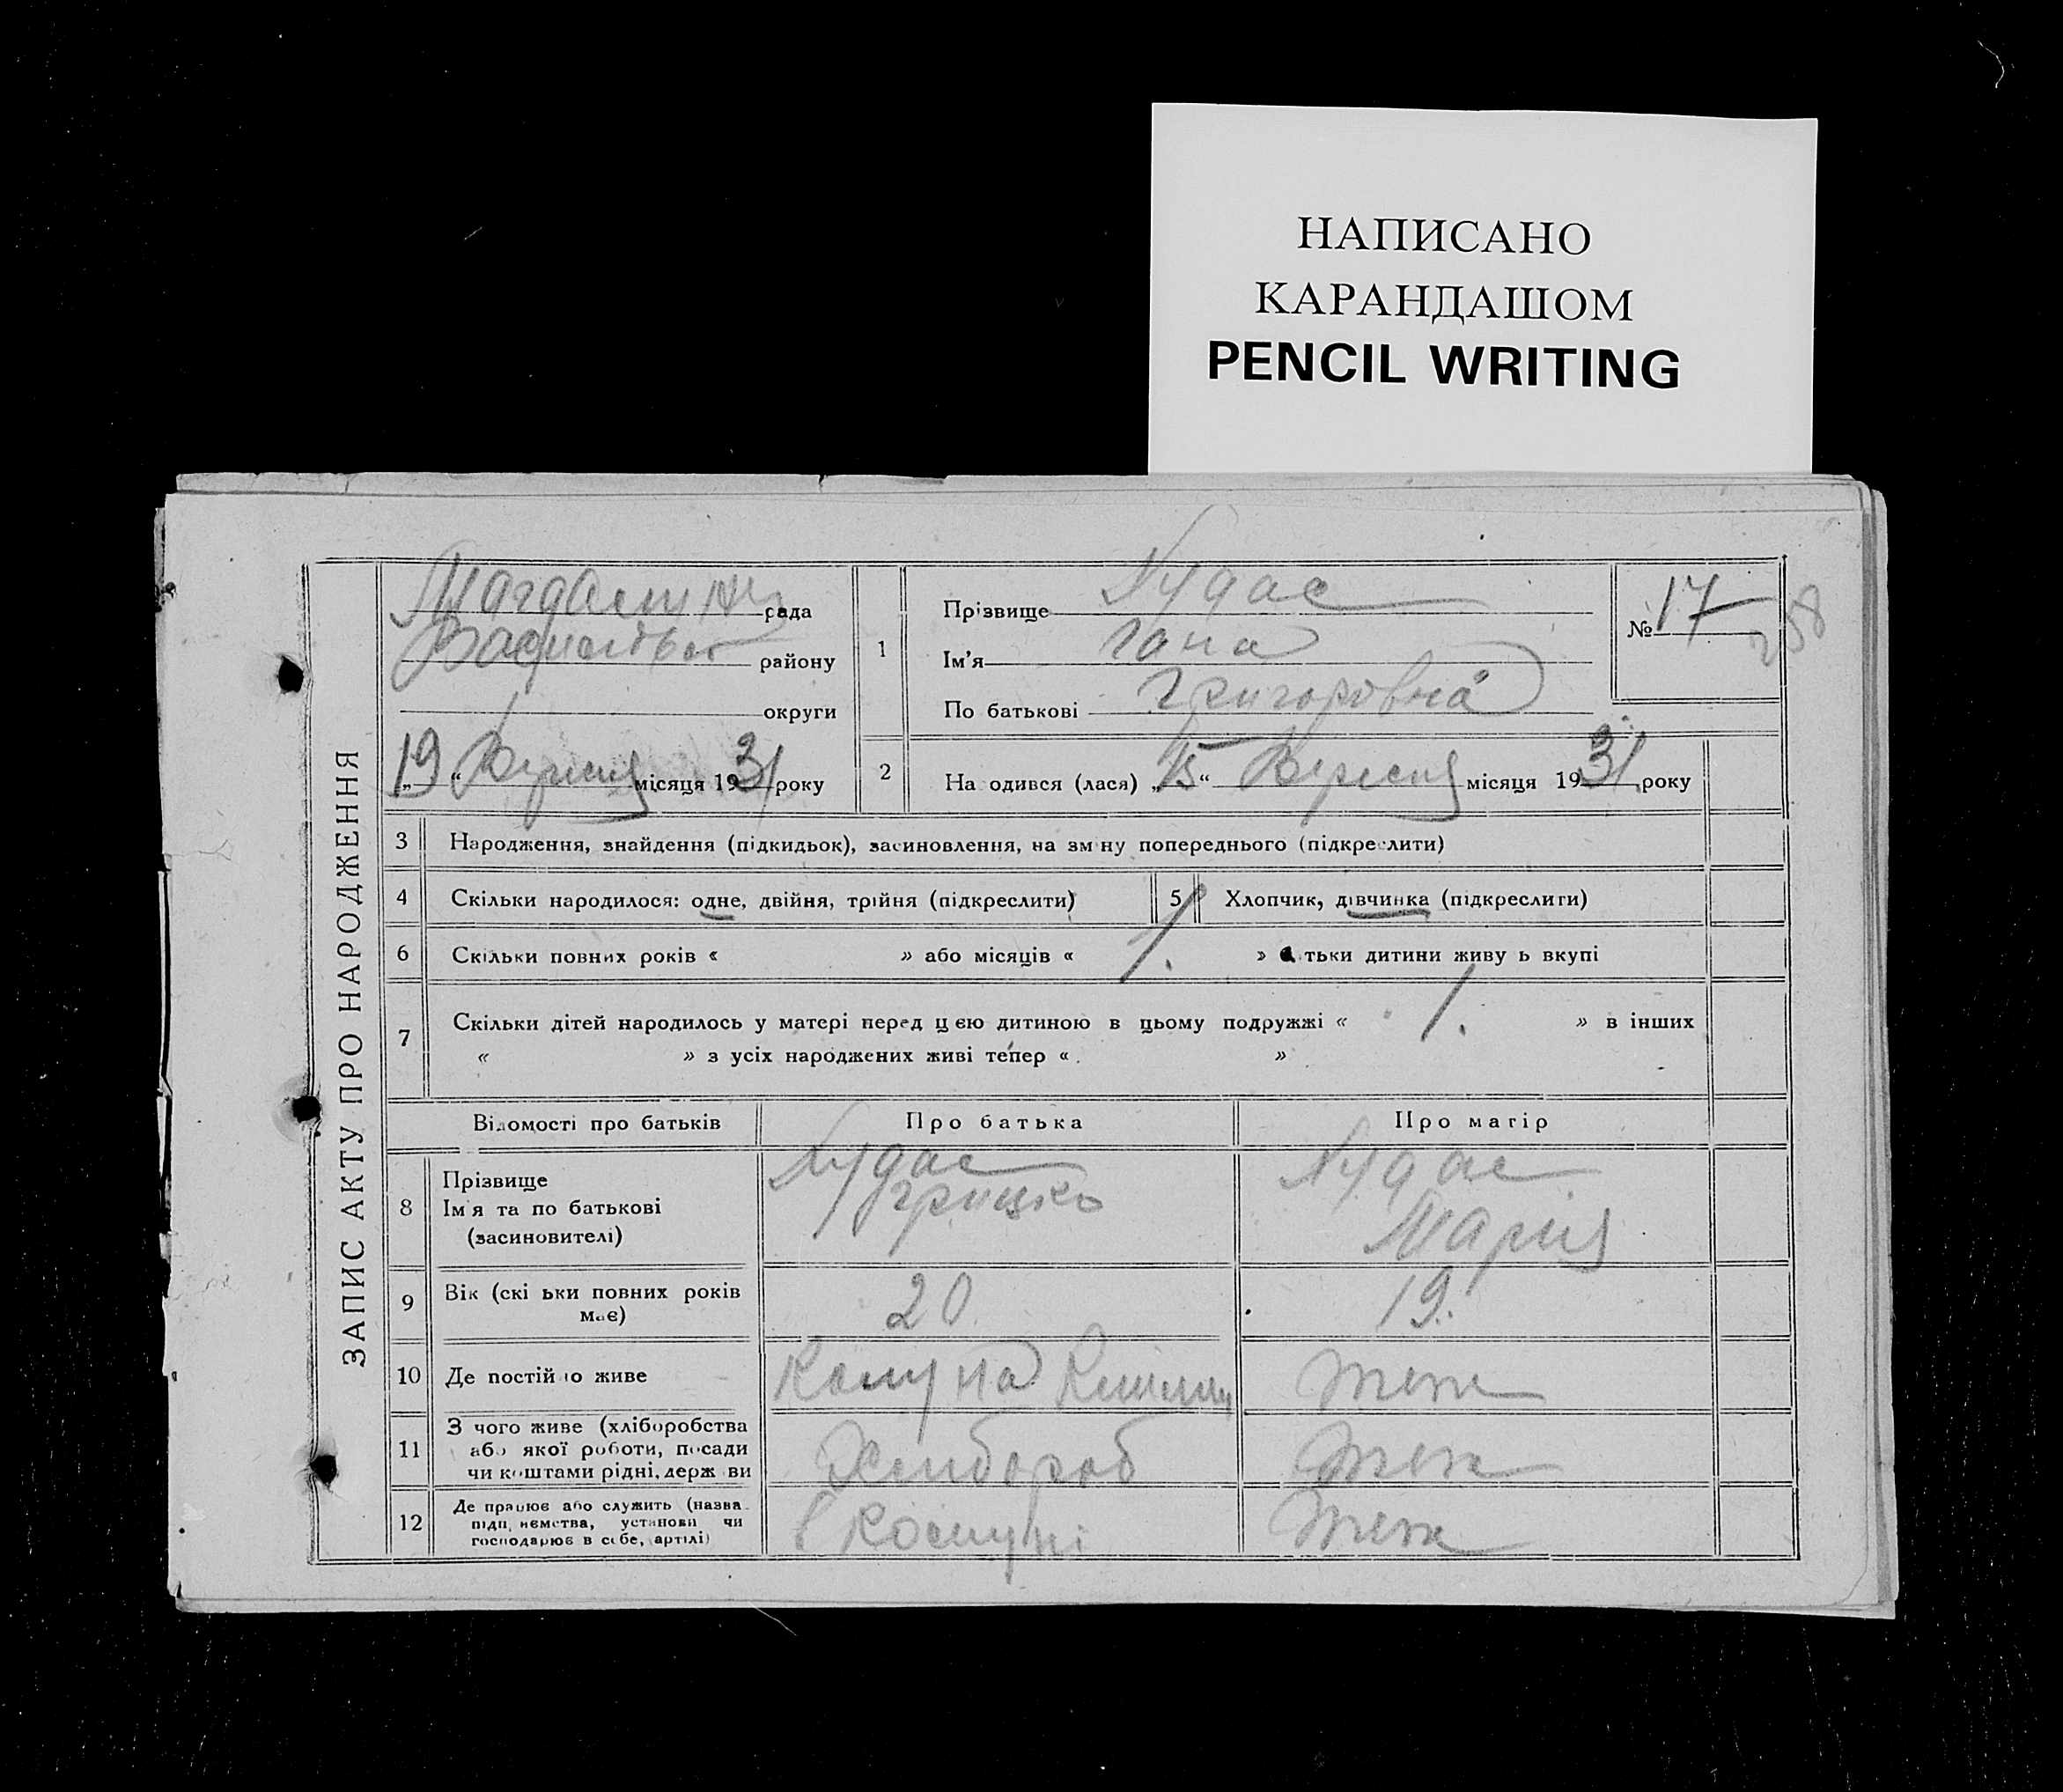 НАПИСАНО
КАРАНДАШОМ
PENCIL WRITING
ЗАПИС АКТУ ПРО НАРОДЖЕННЯ
рада
району
округи
„19“ Вересня місяця 1931 року
1 Прізвище Худас
Ім'я Гана
По батькові Григоровна
№ 17
258
2 На одився (лася) „15“ Вересня місяця 1931 року
3 Народження, знайдення (підкидьок), засиновлення, на зм ну попереднього (підкреслити)
4 Скільки народилося: одне, двійня, трійня (підкреслити)
5 Хлопчик, дівчинка (підкреслити)
6 Скільки повних років « » або місяців « 1. » тьки дитини живу ь вкупі
7 Скільки дітей народилось у матері перед цією дитиною в цьому подружжі « 1. » в інших
« » з усіх народжених живі тепер « »
Відомості про батьків Про батька Про матір
8 Прізвище
Ім'я та по батькові
(засиновителі)
Худас
Грицко
Худас
Мария
9 Вік (скі ьки повних років
має)
20
19.
10 Де постійно живе
Комуна
теж
11 З чого живе (хліборобства
або якої роботи, посади
чи коштами рідні, держ ви
Хлибороб
теж
12 Де працює або служить (назва
підп, немства, установи чи
господарює в себе, артілі)
в Комуні
теж